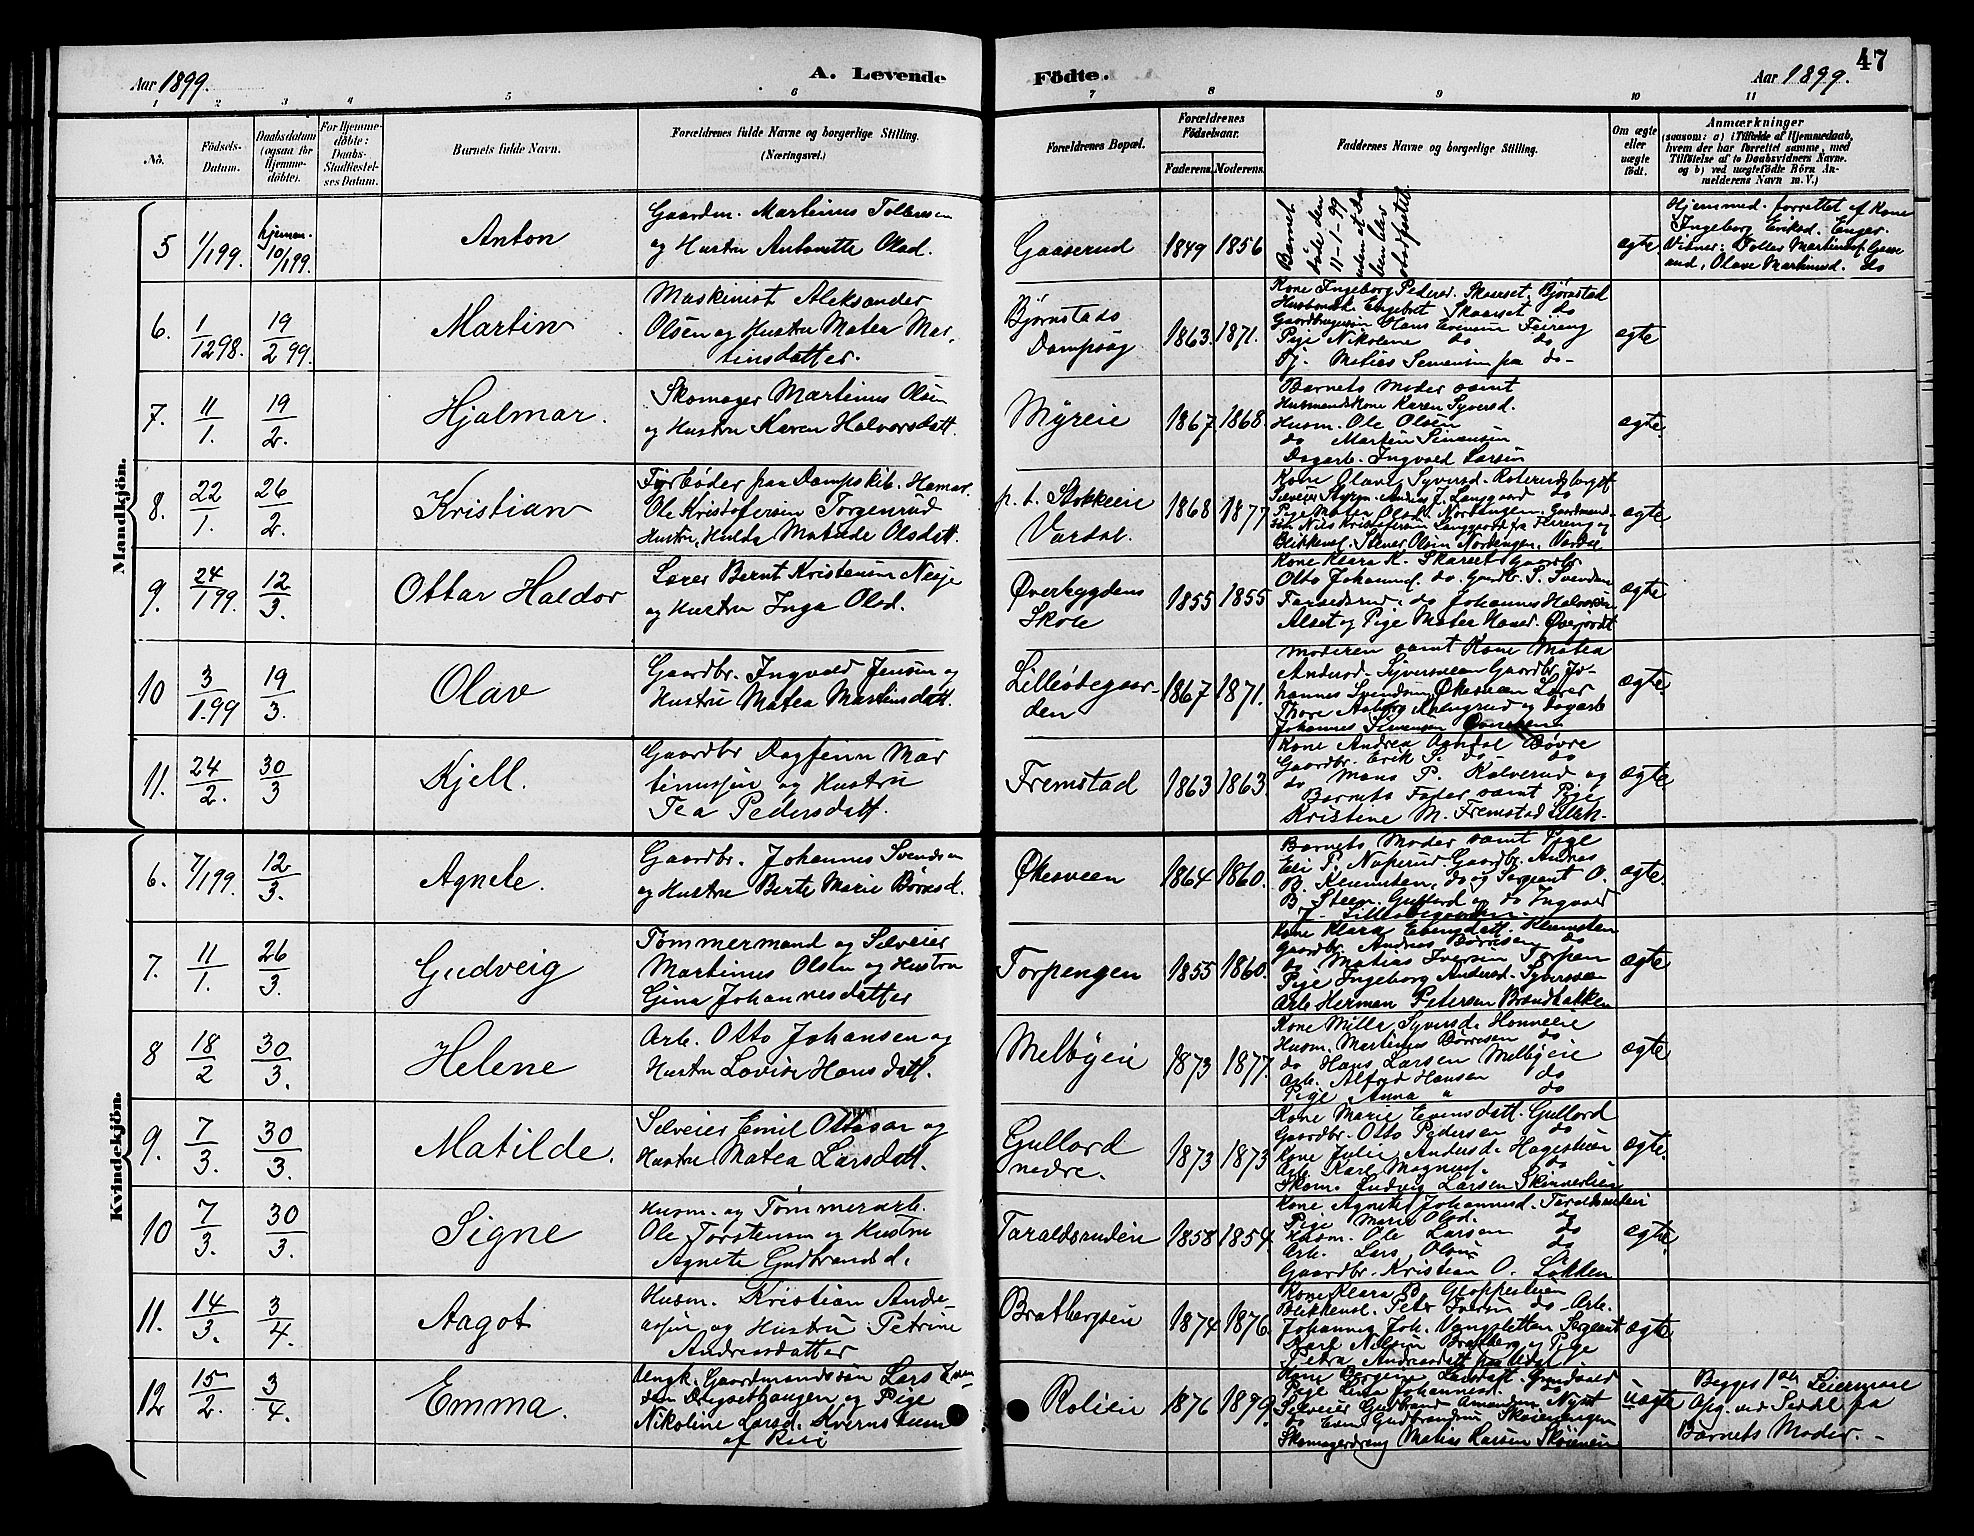 47
Aar 1899.
A. Levende Födte.
Aar 1899.
1 2 3 4 5 6 7 8 9 10 11
No.
Födsels-
Datum.
Daabsdatum
(ogsaa for
Hjemme-
döbte).
For Hjemme-
döbte:
Daabs-
Stadfæstel-
ses Datum.
Barnets fulde Navn.
Forældrenes fulde Navne og borgerlige Stilling.
(Næringsvei.)
Forældrenes Bopæl.
Forældrenes
Födselsaar.
Faderens. Moderens.
Faddernes Navne og borgerlige Stilling.
Om ægte
eller
uægte
födt.
Anmærkninger
(saasom: a) i Tilfælde af Hjemmedaab,
hvem der har forrettet samme, med
Tilföielse af to Daabsvidners Navne.
og b) ved uægtefödte Börn An-
melderens Navn m. V.)
Mandkjön.
5 1/1 99. hjemme- 10/1 99. Anton
Gaardm. Martinus Tollersen
og Hustru Antonette Olsd.
Gaaserud 1849 1856
Barnet
døde den
11-1-99
uden at Daa
ben blev
stadfæstet.
ægte.
Hjemmed. forrettet af Kone
Ingeborg Eriksd. Enger.
Vidner: Martinusd. Gaase
rud, Olava Martinusd. do
6. 1/12 98. 19/2 99. Martin
Maskinist Aleksander
Olsen og Hustru Matea Mar-
tinsdatter.
Bjørnstads
Dampsag
1863. 1871.
Kone Ingeborg Pedersd. Skaarset, Bjørnstad
Husbmd. Engebret Skaarset do
Hans Evensen Feiring
Pige Nikoline do do
Tj. Matias Simensen paa do-
ægte
7. 11/1. 19/2. Hjalmar.
Skomager Martinus Olsen
og Hustru Karen Halvorsdatt.
Myreie 1867 1868.
Barnets Moder samt
Husmandskone Karen Syversd.
Husm. Ole Olsen
do Martin Simensen
Dagarb. Ingvald Larsen
ægte.
8. 22/1. 26/2. Kristian
Fyrbøder paa Dampskib. Hamar.
Ole Kristofersen Torgenrud
Hustru, Hulda Matilde Olsdatt.
p. t. Stokkeie
Vardal.
1868 1877
Kone Olava Syversd. Roterudbygd
Selveier Styrm. Anders J. Langgaard do
Pige Matea Olsd. Nordengen, Gaardmand-
søn Nils Kristofersen Langgaard fra Herreng og
Blikkensl. Stener Olsen Nordengen, Vardal
ægte
9. 24/1 99. 12/3. Ottar Haldor
Lærer Bernt Kristensen Nesje
og Hustru Inga Olsd.
Øverbygdens
Skole
1855 1855
Kone Klara K. Skaret Gaardbr.
Otto Johannes. do Gaardbr. S. Svendsen
Taraldsrud. do Johannes Halvorsen
Alset og Pige Matea Hansd. Øverjordet
ægte
10 3/1. 99 19/3. Olav
Gaardbr. Ingvald Jensen og
Hustru Matea Martinsdatt.
Lilleødegaar-
den
1867 1871.
Moderen samt Kone Matea
Andersd. Syversveen Gaardbr. Jo-
hannes Svendsen, Økesveen Lærer
Thore og Dagarb.
Johannes Simensen
ægte.
11. 24/2. 30/3 Kjell.
Gaardbr Dagfinn Mar
tinussen og Hustru
Tea Pedersdatt.
Fremstad 1863 1863.
Kone Andrea Agedal Bøvre
Gaardbr. Erik S. do do
do Mons P. Kalverud og
Barnets Fader samt Pige
Kristine M. Fremstad Eleh.
ægte
Kvindekjön.
6. 7/1 99. 12/3. Agnete.
Gaardbr. Johannes Svendsen
og Hustru Berte Marie Børresd.
Økesveen 1864 1860.
Barnets Moder samt Pige
Eli P. Naperud. Gaardbr. Andreas
B. Klemsten, do og Sergeant O.
B. Steen. Gullord og do Ingvald
J. Lilleødegaarden.
ægte.
7. 11/1. 26/3. Gudveig
Tømmermand og Selveier
Martinus Olsen og Hustru
Gina Johannesdatter
Torpengen 1855 1860.
Kone Klara Evensdatt. Klemsten
Gaardbr. Andreas Børresen do
do Matias Iversen Torpen
Pige Ingeborg Andersd. Syversveen
Arb. Herman Petersen Brændbakken
ægte
8 18/2 30/3. Helene
Arb. Otto Johansen og
Hustru Lovise Hansdatt.
Melbyeie 1873 1877.
Kone Milla Syversd. Honneeie
Husm. Martinus Børresen do
do Hans Larsen Melbyeie
Arb. Alfred Hansen do
Pige Anna " do
ægte
9. 7/3. 30/3. Matilde.
Selveier Emil Ottosen og
Hustru Matea Larsdatt.
Gullord
nedre.
1873 1873
Kone Marie Evensdatt. Gullord
Gaardbr. Otto Pedersen do
Kone Julie Andersd. Hagestuen
Arb. Karl Magnus. do
Skom. Ludvig Larsen Skinnerlien
ægte.
10 7/3. 30/3. Signe
Husm. og Tømmerarb.
Ole Torstensen og Hustru
Agnete Gudbrandsd.
Taraldsrudeie 1858 1854
Kone Agnete Johannesd. Taraldsrudeie
Pige Marie Olsd. do
Husm. Ole Larsen do
Arb. Lars Olsen do
Gaardbr. Kristian O. Løkken
ægte.
11. 14/3. 3/4. Aagot
Husm. Kristian Andre-
assen og Hustru Petrine
Andreasdatter
Bratbergseie 1874 1876.
Kone Klara B. Gloppestuen
Blikkensl. Peter Iversen do Arb.
Johannes Joh. Vangsletten Sergeant
Karl Nilsen Bratberg og Pige
Petra Andreasdatt.
ægte
12 15/2. 3/4. Emma.
Ungk. Gaardmandssøn Lars Even
sen og Pige
Nikoline Larsd. Kvernstuen
af Rili
Rolien 1876 1879.
Kone Borgine Larsdatt. Grindvold
Pige Lina Johannesd. do
Selveier Gudbrand Amundsen Nyst
do Even Gudbrandsen Skøienengen
Skomagerdreng Matias Larsen Skøieneie
uægte
Begges 1ste Leiermaal
Opg. ved Seddel fra
Barnets Moder. -